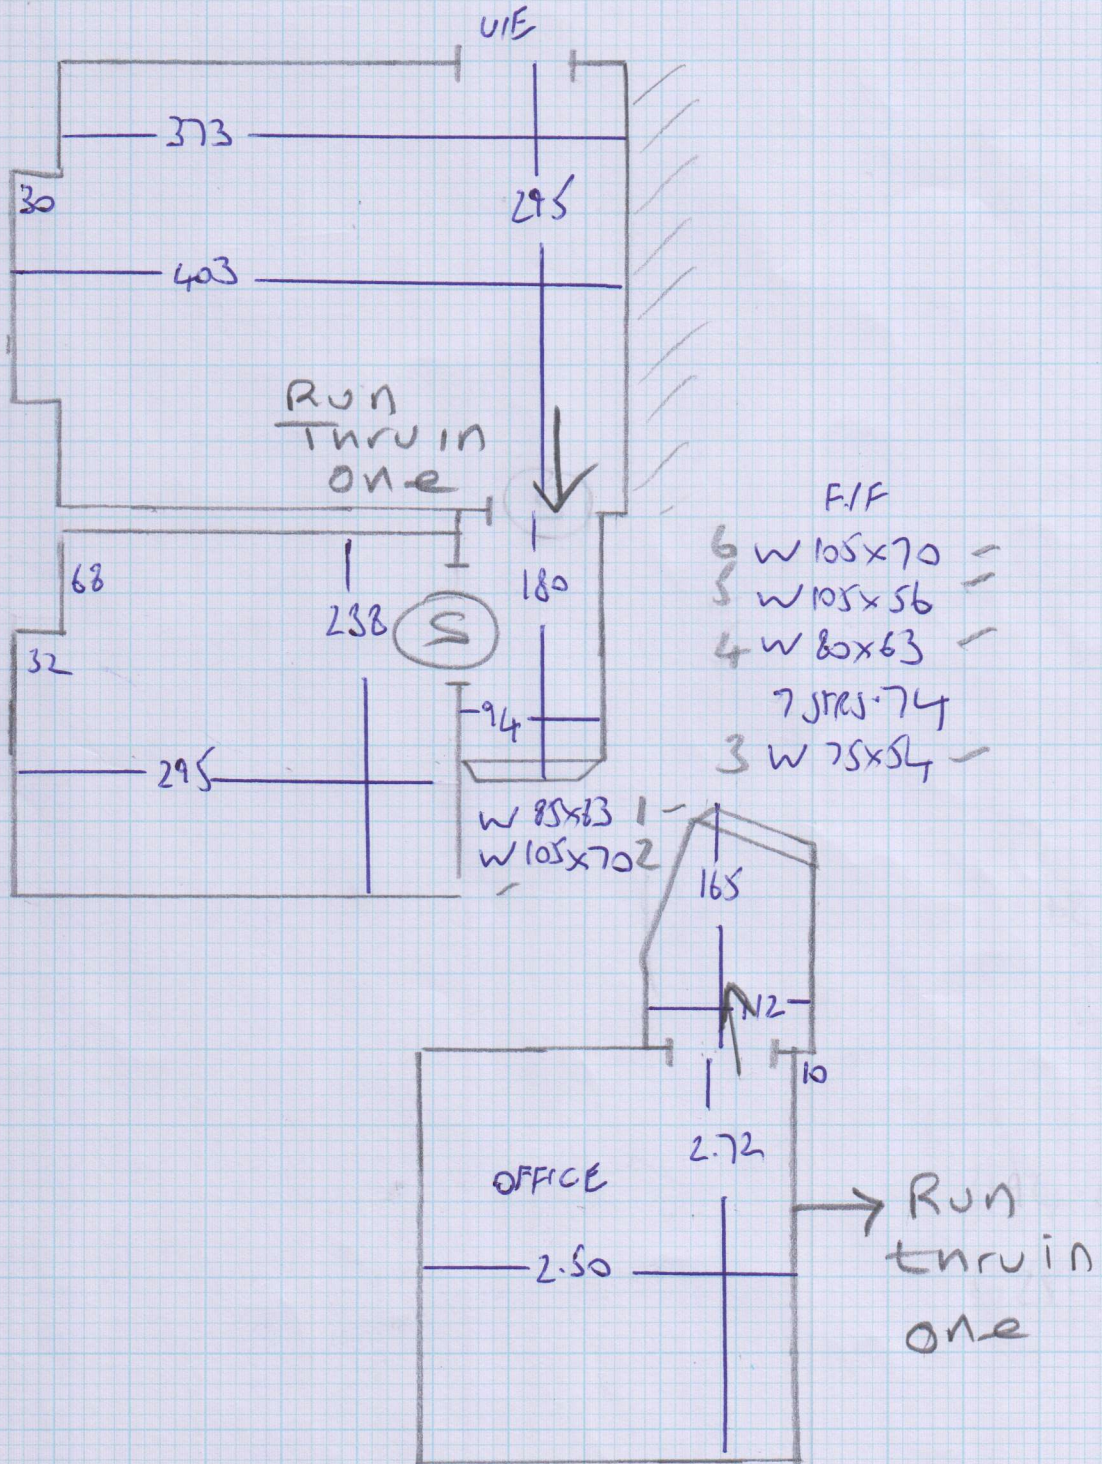 U/E
373
30
295
403
Run
Thru in
one
F./F
6 W 105x70 -
5 W 105x56 -
4 W 80x63 -
7 STRS.74
3 W 75x54 -
68
180
238
S
32
94
295
W 85x63 1 -
W 105x70 2 -
165
112
10
2.72
OFFICE
2.50
Run
thru in
one